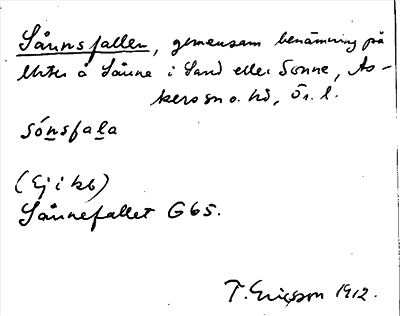 Sånnsfallen, gemensam benämning på
åker å Sånne i Sand eller Sonne, As-
kers sn o. hd, Ör. l.
sónsfala
(Ej i kb)
Sånnefallet G65.
T. Ericsson 1912.